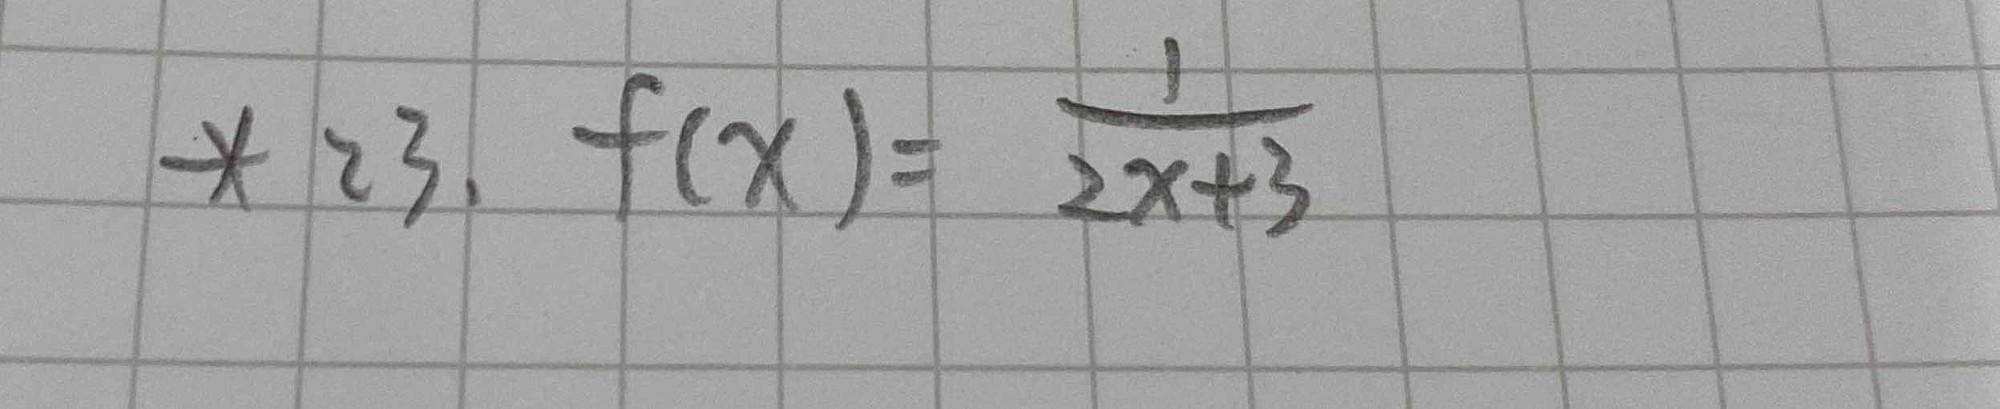 * 23. f(x) = 1/(2x+3)